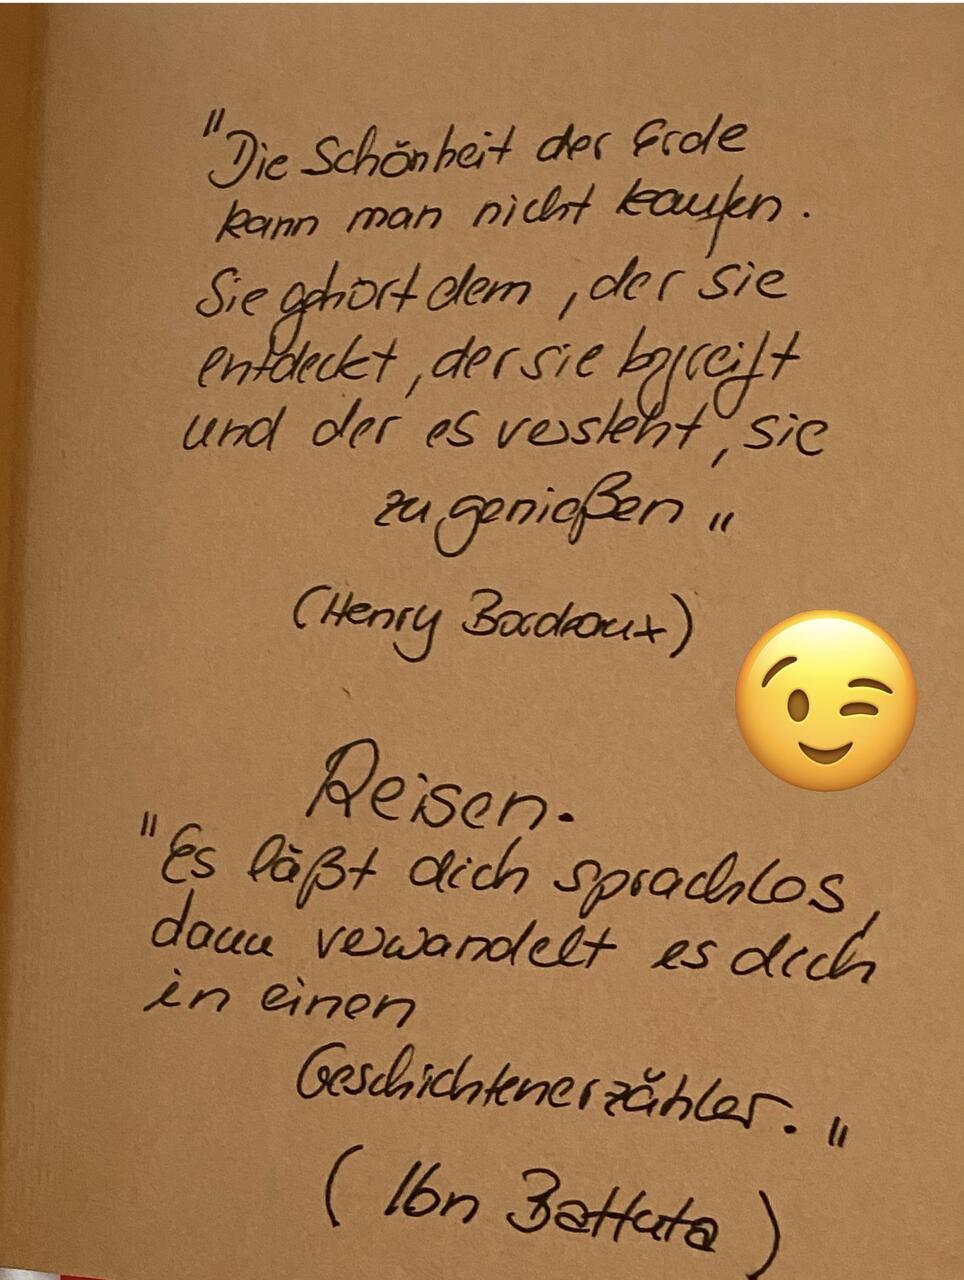 "Die Schönheit der Erde
kann man nicht kaufen.
Sie gehört dem, der sie
entdeckt, der sie begreift
und der es versteht, sie
zu genießen"
(Henry Bordeaux)
Reisen.
"Es läßt dich sprachlos,
dann verwandelt es dich
in einen
Geschichtenerzähler."
(Ibn Battuta)